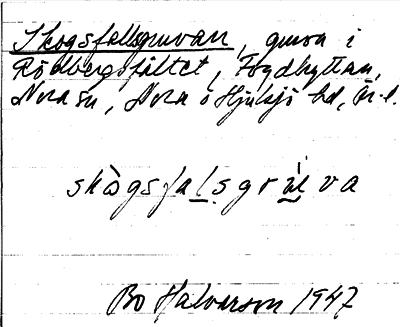 Skogsfallsgruvan, gruva i
Rödbergsfältet, Fogdhyttan,
Nora sn, Nora o Hjulsjö bd, Ör. l.
skògsfalsgrúva
Bo Halvarson 1947